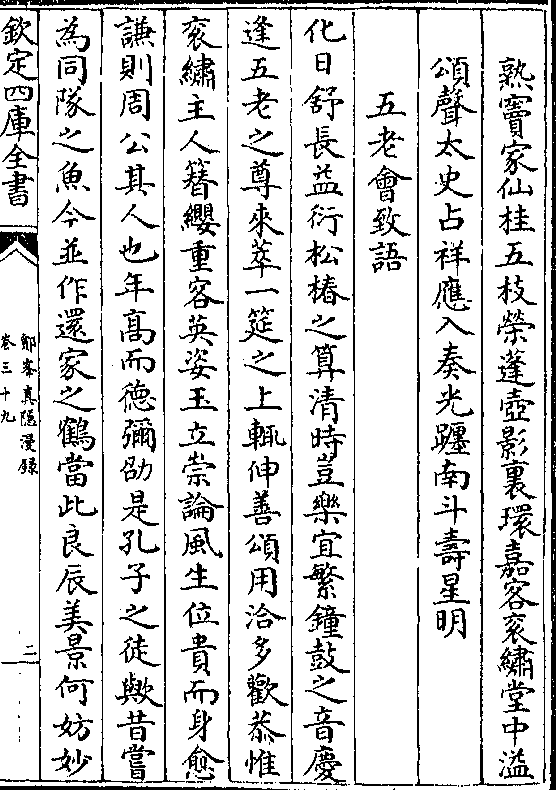 熟竇家仙桂五枝榮蓬壺影裏環嘉客衮繡堂中溢
頌聲太史占祥應入奏光躔南斗壽星明
五老會致語
化日舒長益衍松椿之算清時豈樂宜繁鐘鼓之音慶
逢五老之尊來萃一筵之上輒伸善頌用洽多歡恭惟
衮繡主人簪纓重客英姿玉立崇論風生位貴而身愈
謙則周公其人也年髙而德彌劭是孔子之徒歟昔嘗
為同隊之魚今並作還家之鶴當此良辰美景何妨妙
欽定四庫全書
鄮峯真隠漫錄
卷三十九
二